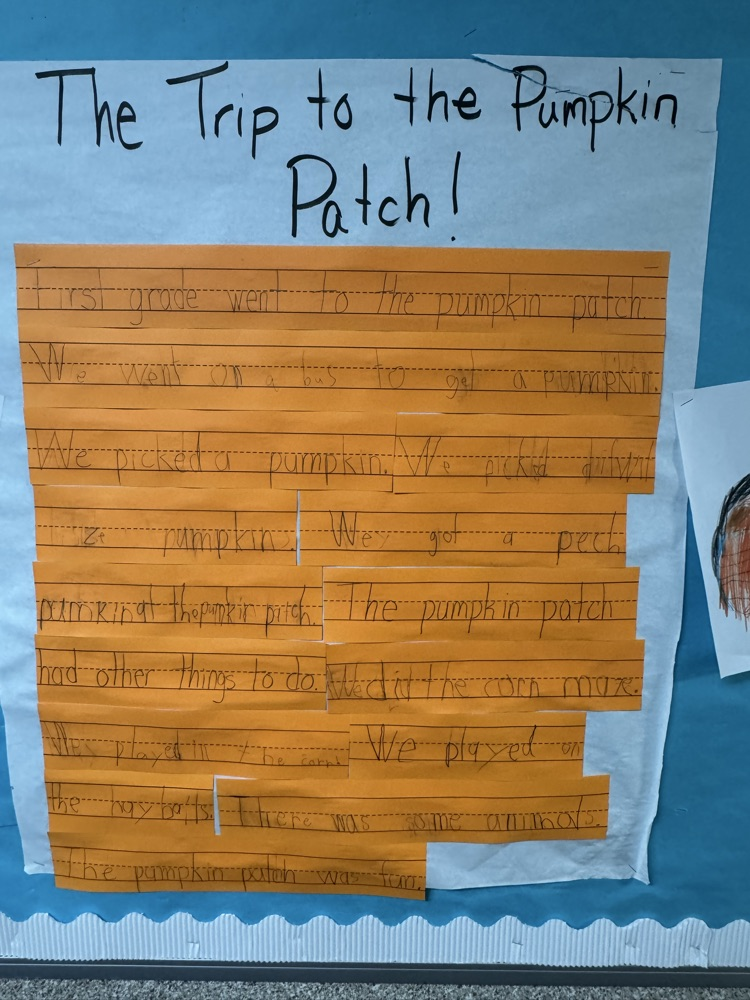 The Trip to the Pumpkin
Patch!
First grade went to the pumpkin patch
We went on a bus to get a pumpkin.
We picked a pumpkin. We pickd
ze pumpkins. We got a pech
pumkin at the pumpkin pitch. The pumpkin patch
had other things to do. We did the corn maze.
We played in the corn. We played on
the hay balls. There was some animals.
The pumpkin patch was fun.